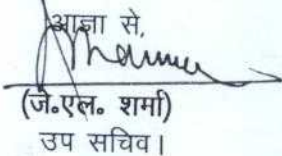 आज्ञा से,
(जे०एल० शर्मा)
उप सचिव।